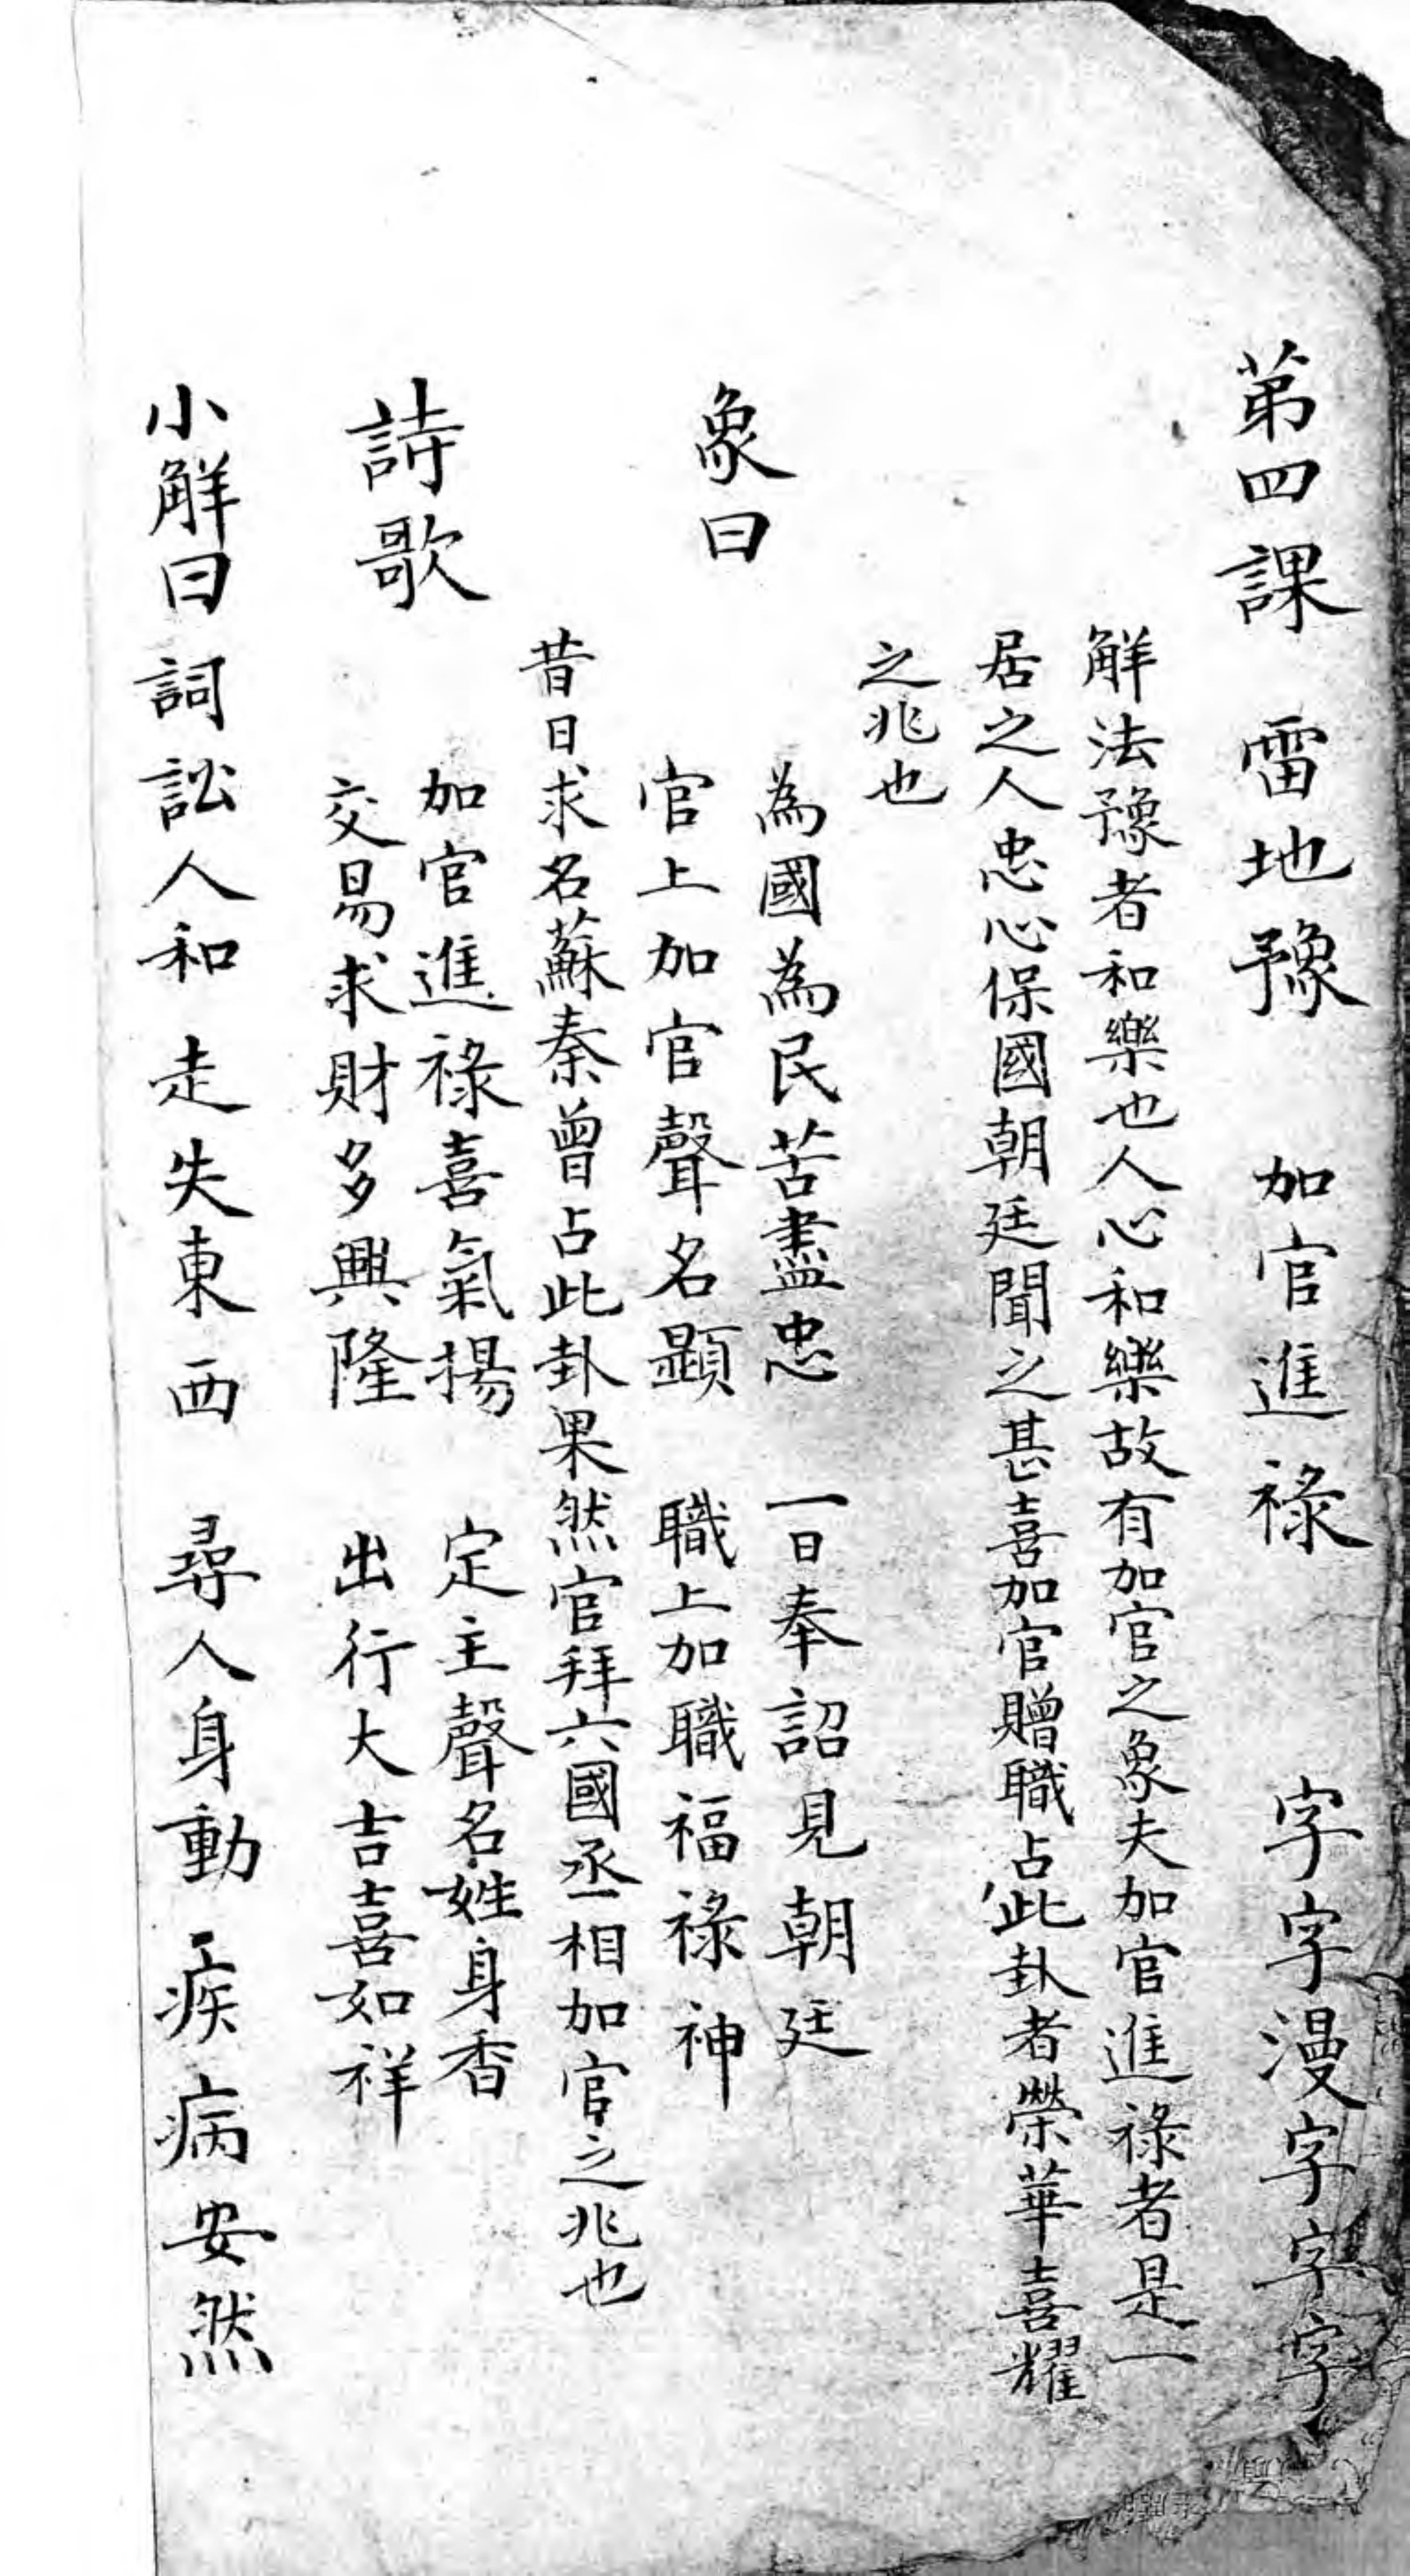 第四課　雷地豫　加官進祿　字字漫字字字
觧法豫者和樂也人心和樂故有加官之象夫加官進祿者是一
居之人忠心保國朝廷聞之甚喜加官贈職占此卦者榮華喜耀
之兆也
象曰
為國為民苦盡忠　一日奉詔見朝廷
官上加官聲名顯　職上加職福祿神
昔日求名蘇秦曾占此卦果然官拜六國丞相加官之兆也
詩歌
加官進祿喜氣揚　定主聲名姓身香
交易求財多興隆　出行大吉喜如祥
小觧曰　詞訟人和　走失東西　尋人身動　疾病安然